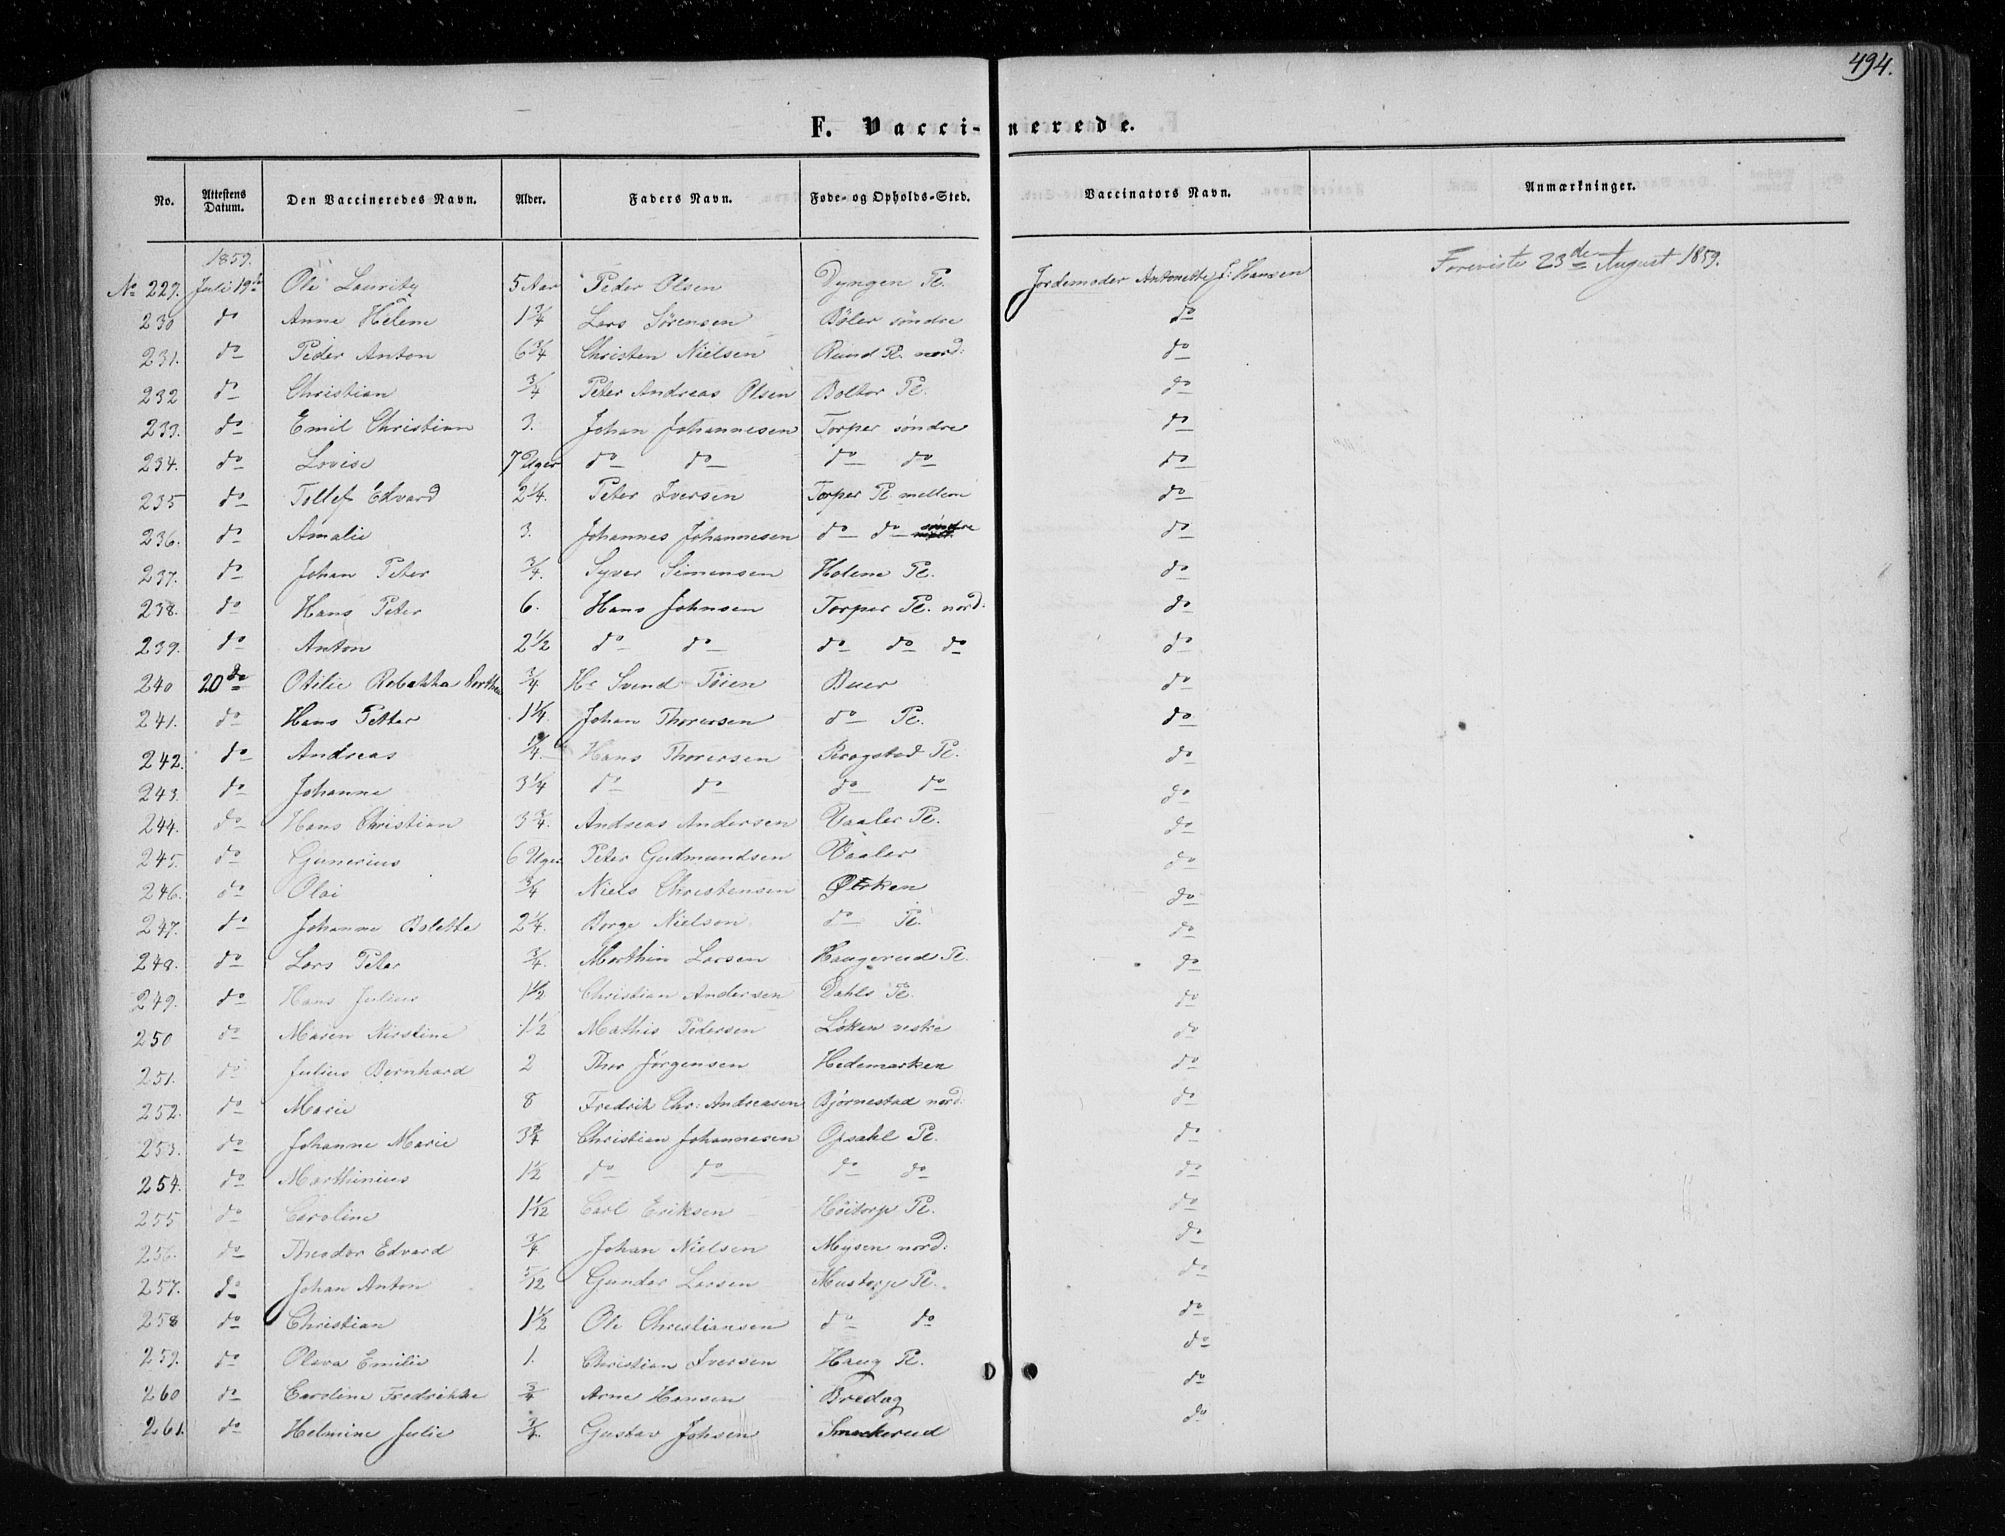 494.
F. Vaccinerede.
No. | Attestens Datum. | Den Vaccineredes Navn. | Alder. | Faders Navn. | Føde- og Opholds-Sted. | Vaccinators Navn. | Anmærkninger.
1859.
No 229. | Juli 19de | Ole Lauritz | 5 Aar | Peder Olsen | Dyngen Pl. | Jordemoder Antonette J: Hansen | Foreviste 23de August 1859.
230 | do | Anne Helene | 1 3/4 | Lars Sørensen | Bøler søndre | do
231. | do | Peder Anton | 6 3/4 | Christen Nielsen | Rund Pl. nord: | do
232 | do | Christian | 3/4 | Peter Andreas Olsen | Boltor Pl. | do
233. | do | Emil Christian | 3. | Johan Johannesen | Torper søndre | do
234. | do | Lovise | 7 Uger | do do | do do | do
235 | do | Tollef Edvard | 2 1/4. | Peter Iversen | Torper Pl mellem | do
236. | do | Amalie | 3. | Johannes Johannesen | do do søndre | do
237. | do | Johan Peter | 3/4. | Syver Simensen | Holene Pl. | do
238. | do | Hans Peter | 6. | Hans Johnsen | Torper Pl. nord: | do
239. | do | Anton | 2 1/2 | do do | do do do | do
240 | 20de | Otilie Rebekka | 3/4 | Hr Svend Töien | Buer | do
241. | do | Hans Petter | 1 1/4. | Johan Thorersen | do Pl. | do
242. | do | Andreas | 1/4. | Hans Thorersen | Kragstad Pl. | do
243. | do | Johanne | 3 1/4 | do do | do do | do
244. | do | Hans Christian | 3 3/4. | Andreas Andersen | Vaaler Pl. | do
245. | do | Gunerius | 6 Uger | Peter Gudmundsen | Vaaler | do
246. | do | Olai | 3/4 | Niels Christensen | Ørken | do
247. | do | Johanne Bolette | 2 1/4. | Borge Nielsen | do Pl. | do
248. | do | Lars Peter | 3/4. | Marthin Larsen | Haugerud Pl. | do
249. | do | Hans Julius | 1 1/2 | Christian Andersen | Dahls Pl. | do
250 | do | Maren Kirstine | 1 1/2 | Mathis Pedersen | Løken vestre | do
251. | do | Julius Bernhard | 2 | Thor Jørgensen | Hedemarken | do
252. | do | Marie | 8 | Fredrik Chr: Andreasen | Bjørnestad nord: | do
253. | do | Johanne Marie | 3 3/4 | Christian Johannesen | Opsahl Pl. | do
254. | do | Marthinius | 1 1/2 | do do | do do | do
255 | do | Caroline | 1 1/12 | Carl Eriksen | Höitorp Pl. | do
256. | do | Theodor Edvard | 3/4 | Johan Nielsen | Mysen nord: | do
257. | do | Johan Anton | 5/12 | Gunder Larsen | Mustorp Pl. | do
258 | do | Christian | 1 1/2 | Ole Christiansen | do do | do
259. | do | Olava Emilie | 1. | Christian Iversen | Haug Pl. | do
260 | do | Caroline Fredrikke | 3/4 | Arne Hansen | Bredag | do
261. | do | Helmine Julie | 3/4. | Gustav Johsen | Smockerud | do